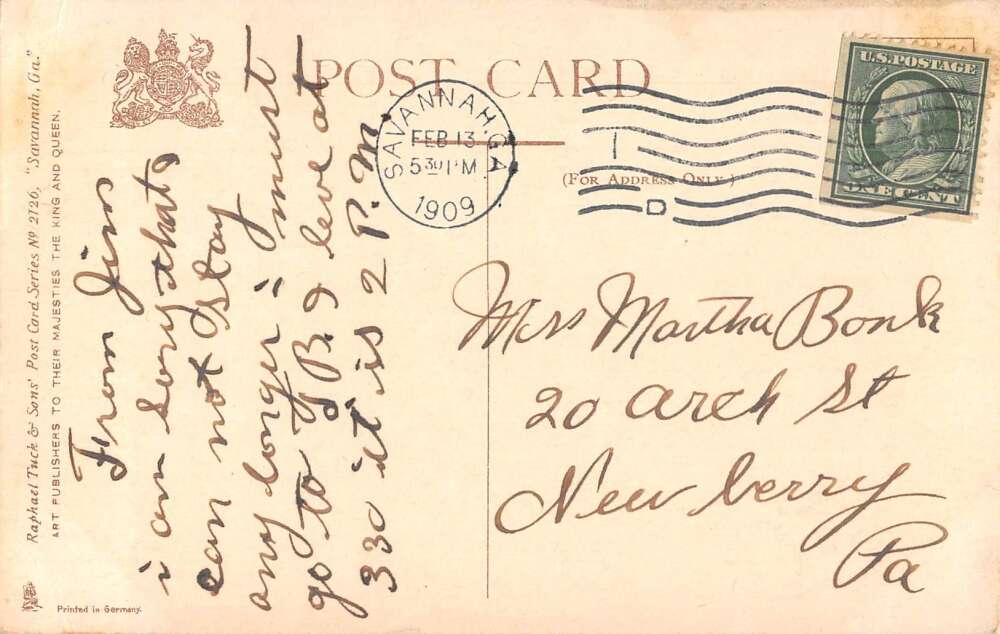 POST CARD
(FOR ADDRESS ONLY.)
U.S. POSTAGE
ONE CENT
SAVANNAH, GA.
FEB 13
530 P M
1909
1
D
Raphael Tuck & Sons' Post Card Series No 2726, "Savannah, Ga."
ART PUBLISHERS TO THEIR MAJESTIES THE KING AND QUEEN.
Printed in Germany.
From Jim
i am sory that
can not stay
any longer i must
go to T B. i leve at
330 it is 2 P. M.
Mrs Martha Bonk
20 arch St
New berry
Pa